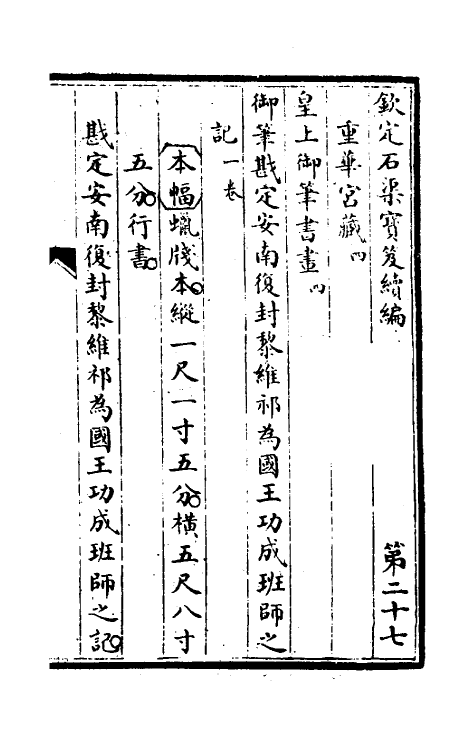 欽定石渠寶笈續編 第二十七
重華宮藏四
皇上御筆書畫四
御筆戡定安南復封黎維祁為國王功成班師之
記一卷
本幅蠟牋本。縱一尺一寸五分。橫五尺八寸
五分。行書。
戡定安南復封黎維祁為國王功成班師之記。